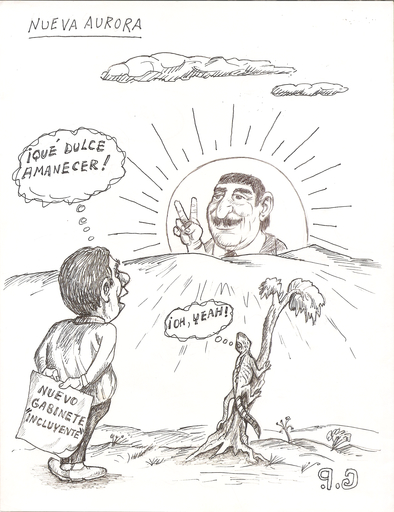 NUEVA AURORA
¡QUÉ DULCE
AMANECER!
¡OH, YEAH!
NUEVO
GABINETE
"INCLUYENTE"
G.P.